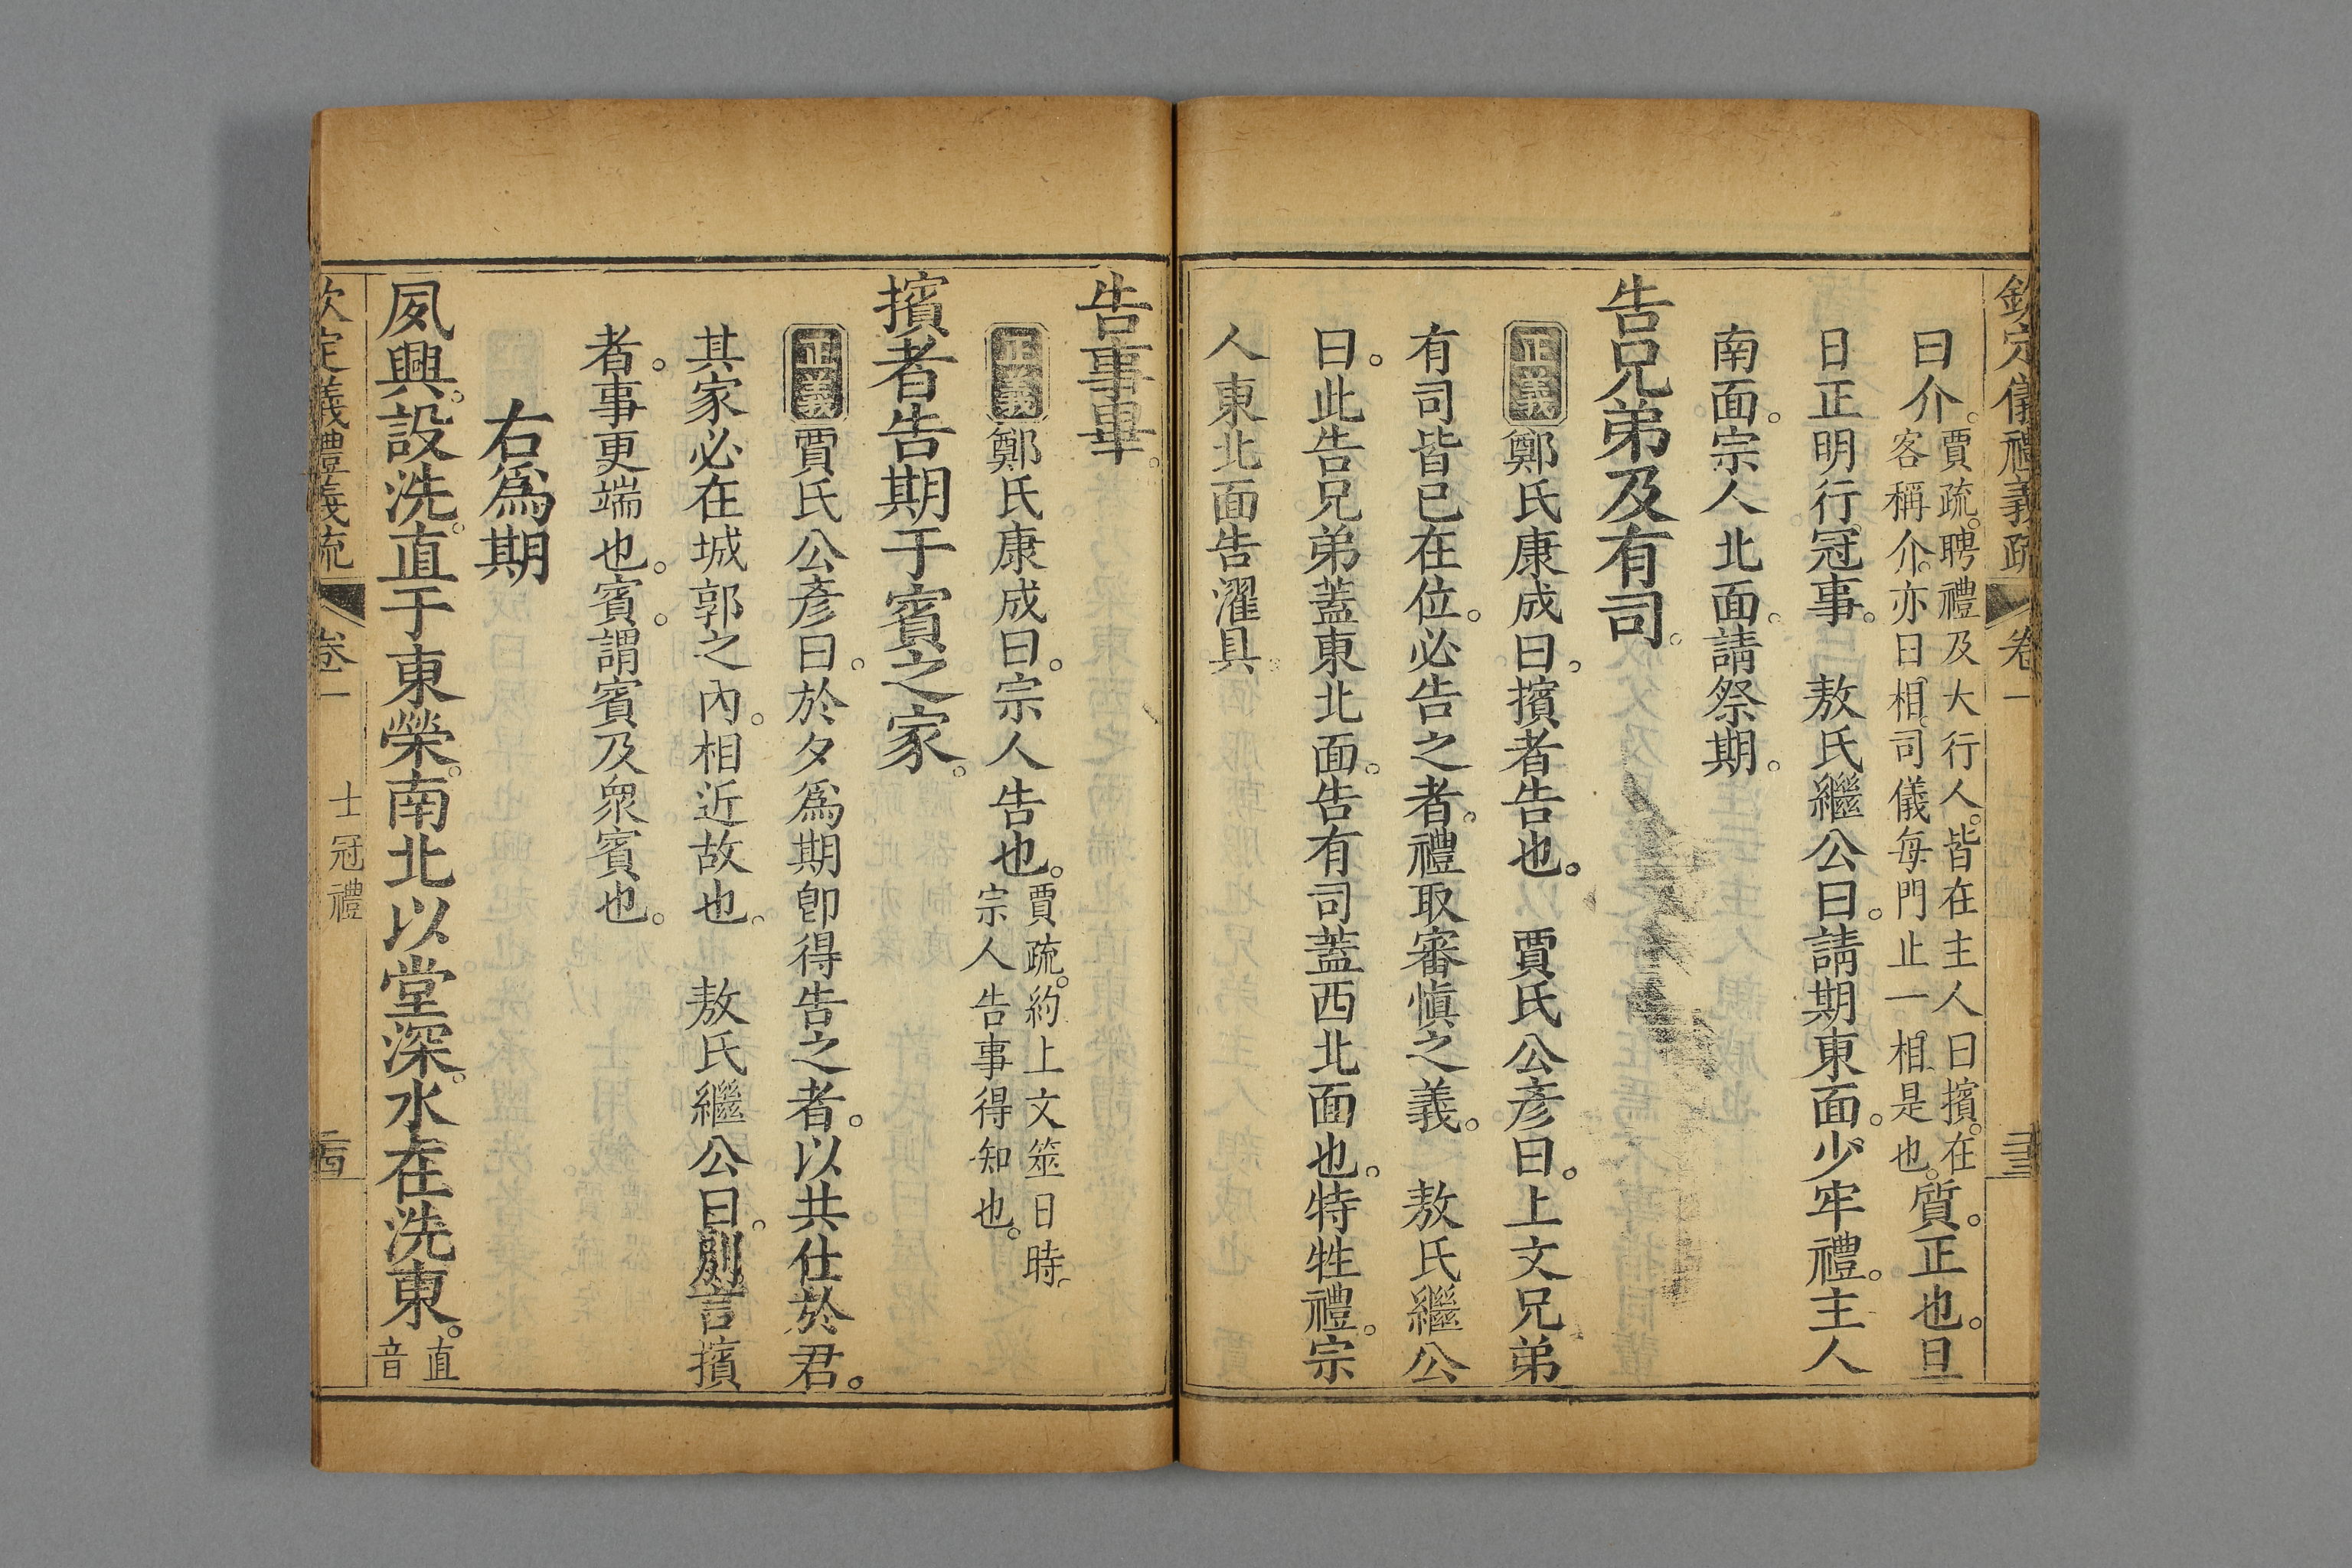 欽定儀禮義疏 卷一
曰介。賈疏。聘禮及大行人。皆在主人曰擯。在
客稱介。亦曰相。司儀每門止一相。是也。質。正也。旦
日正明行冠事。 敖氏繼公曰。請期東面。少牢禮。主人
南面。宗人北面。請祭期。
告兄弟及有司。
正義 鄭氏康成曰。擯者告也。 賈氏公彥曰。上文兄弟
有司皆已在位。必告之者。禮取審愼之義。 敖氏繼公
曰。此告兄弟蓋東北面。告有司蓋西北面也。特牲禮。宗
人東北面告濯具。
告事畢。
正義 鄭氏康成曰。宗人告也。賈疏。約上文筮日時。
宗人告事得知也。
擯者告期于賓之家。
正義 賈氏公彥曰。於夕爲期卽得告之者。以共仕於君。
其家必在城郭之內。相近故也。 敖氏繼公曰。別言擯
者。事更端也。賓。謂賓及衆賓也。
右爲期
夙興。設洗。直于東榮。南北以堂深。水在洗東。直
音
欽定儀禮義疏 卷一 士冠禮